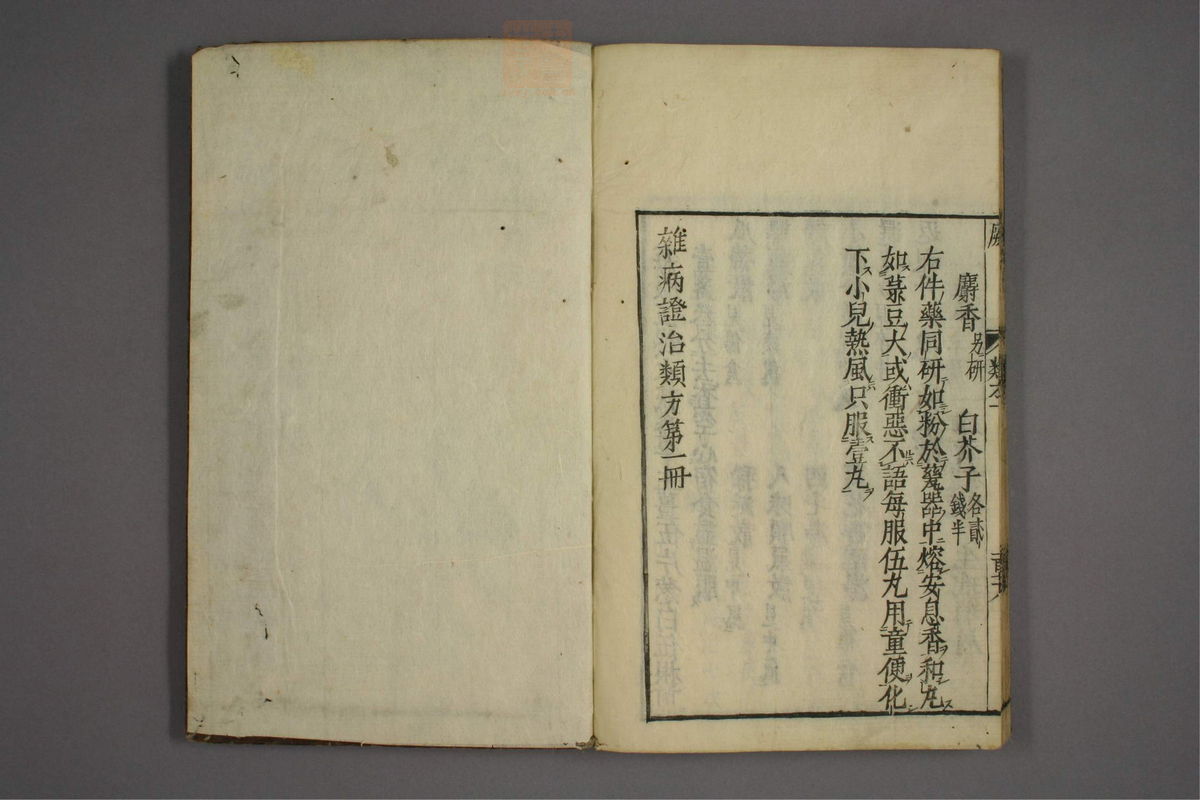 麝香另研　白芥子各貳錢半
右件藥同研如粉於甆器中熔安息香和丸
如菉豆大或衝惡不語每服伍丸用童便化
下小兒熱風只服壹丸
雜病證治類方第一冊